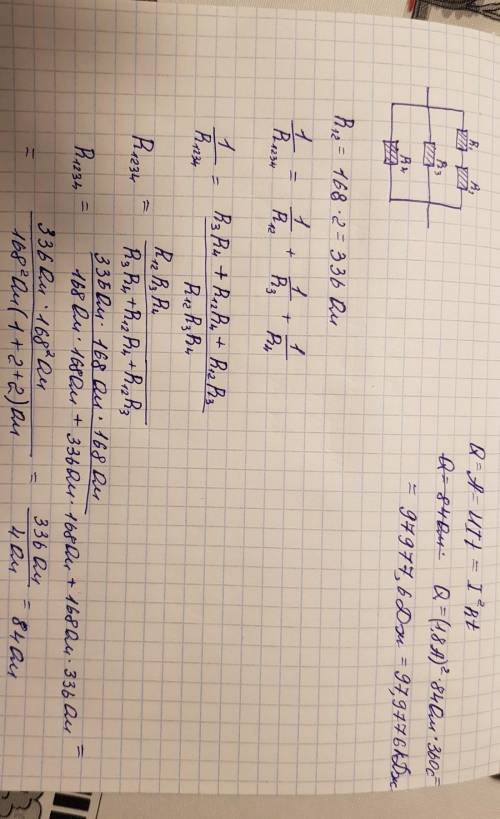 R₁ R₂
R₃
R₄
R₁₂ = 168 · 2 = 336 Ом
1/R₁₂₃₄ = 1/R₁₂ + 1/R₃ + 1/R₄
1/R₁₂₃₄ = (R₃R₄ + R₁₂R₄ + R₁₂R₃)/(R₁₂R₃R₄)
R₁₂₃₄ = (R₁₂R₃R₄)/(R₃R₄ + R₁₂R₄ + R₁₂R₃)
R₁₂₃₄ = (336 Ом · 168 Ом · 168 Ом)/(168 Ом · 168 Ом + 336 Ом · 168 Ом + 168 Ом · 336 Ом) =
= (336 Ом · 168² Ом)/(168² Ом (1+2+2) Ом) = 336 Ом/4 Ом = 84 Ом
Q = A = UIt = I²Rt
Q = 84 Ом Q = (1,8 А)² · 84 Ом · 360 с =
= 97977,6 Дж = 97,9776 кДж